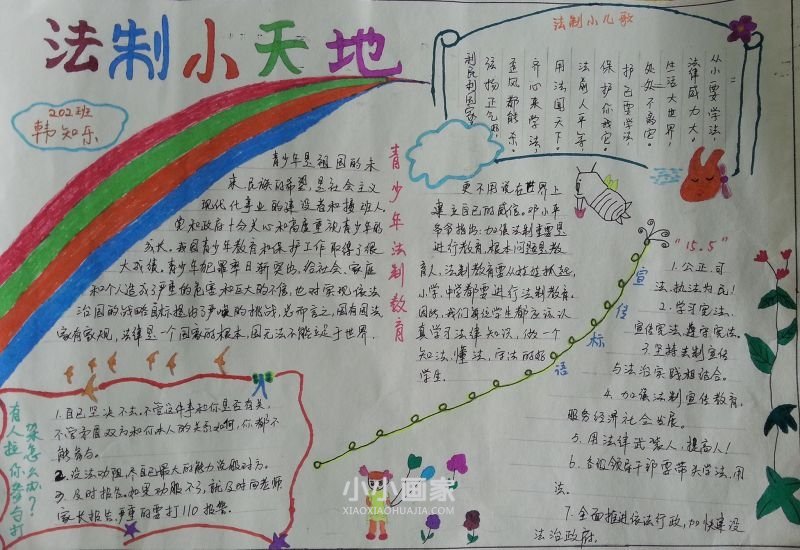 法制小天地
202班
韩知乐
法制小儿歌
从小要学法，
法律威力大。
生活大世界，
处处不离它。
护己要学法，
保护你我它。
法前人平等
用法国天下。
齐心来学法，
歪风都能杀。
弘扬正气歌，
利民利国家
青少年法制教育
青少年是祖国的未
来、民族的希望，是社会主义
现代化事业的建设者和接班人。
党和政府十分关心和高度重视青少年的
成长。我国青少年教育和保护工作取得了很
大成绩。青少年犯罪率日渐突出，给社会、家庭
和个人造成了严重的危害和巨大的不良，也对实现依法
治国的战略目标提出了严峻的挑战。总而言之，国有国法
家有家规，法律是一个国家的根本，国无法不能立足于世界。
更不用说在世界上
建立自己的威信。邓小平
多次指出：加强法制重要是
进行教育，根本问题是教
育人。法制教育要从娃娃抓起，
小学、中学都要进行法制教育。
因此，我们每位学生都应该认
真学习法律知识，做一个
知法、懂法、守法的好
学生。
宣传标语
"15.5"
1. 公正、司
法，执法为民！
2. 学习宪法、
宣传宪法、遵守宪法。
3. 坚持法制宣传
与法治实践相结合。
4. 加强法制宣传教育，
服务经济社会发展。
5. 用法律武装人，提高人！
6. 各级领导干部要带头学法、用
法。
7. 全面推进依法行政，加快建设
法治政府。
有人拉你参与打
架怎么办？
1. 自己坚决不去，不管这件事和你是否有关，
不管矛盾双方和你本人的关系如何，你都不
能参与。
2. 设法劝阻，尽自己最大的能力说服对方。
3. 及时报告。如果劝服不了，就及时向老师
家长报告。严重的要打110报警。
小小画家
XIAOXIAOHUAJIA.COM